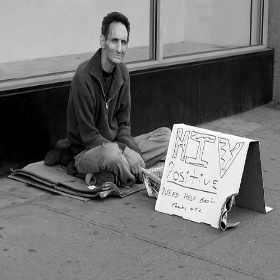 HIV
Positive
NEED HELP BAD
Thanks